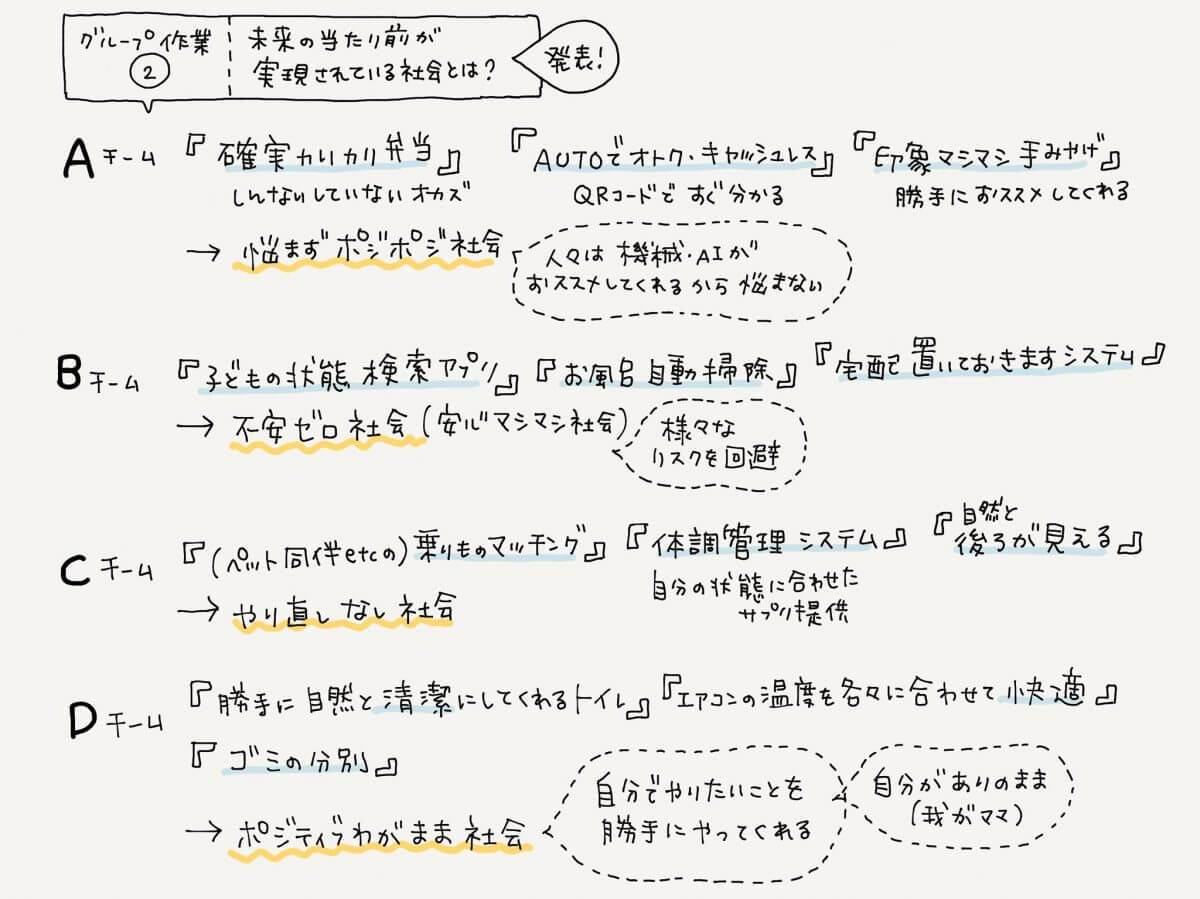 グループ作業
②
未来の当たり前が
実現されている社会とは?
発表!
Aチーム
『確実カリカリ弁当』
しんなりしていないオカズ
『AUTOでオトク・キャッシュレス』
QRコードですぐ分かる
『印象マシマシ手みやげ』
勝手におススメしてくれる
→ 悩まずポジポジ社会
人々は機械・AIが
おススメしてくれるから悩まない
Bチーム
『子どもの状態検索アプリ』『お風呂自動掃除』『宅配置いておきますシステム』
→ 不安ゼロ社会(安心マシマシ社会)
様々な
リスクを回避
Cチーム
『(ペット同伴etcの)乗りものマッチング』
『体調管理システム』
自分の状態に合わせた
サプリ提供
『自然と
後ろが見える』
→ やり直しなし社会
Dチーム
『勝手に自然と清潔にしてくれるトイレ』『エアコンの温度を各々に合わせて快適』
『ゴミの分別』
→ ポジティブわがまま社会
自分でやりたいことを
勝手にやってくれる
自分がありのまま
(我がママ)